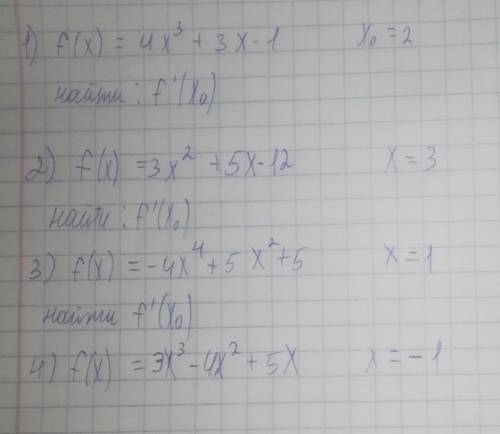 1) f(x) = 4x³ + 3x - 1 x₀ = 2
найти: f'(x₀)
2) f(x) = 3x² + 5x - 12 x = 3
найти: f'(x₀)
3) f(x) = -4x⁴ + 5x² + 5 x = 1
найти f'(x₀)
4) f(x) = 3x³ - 4x² + 5x x = -1